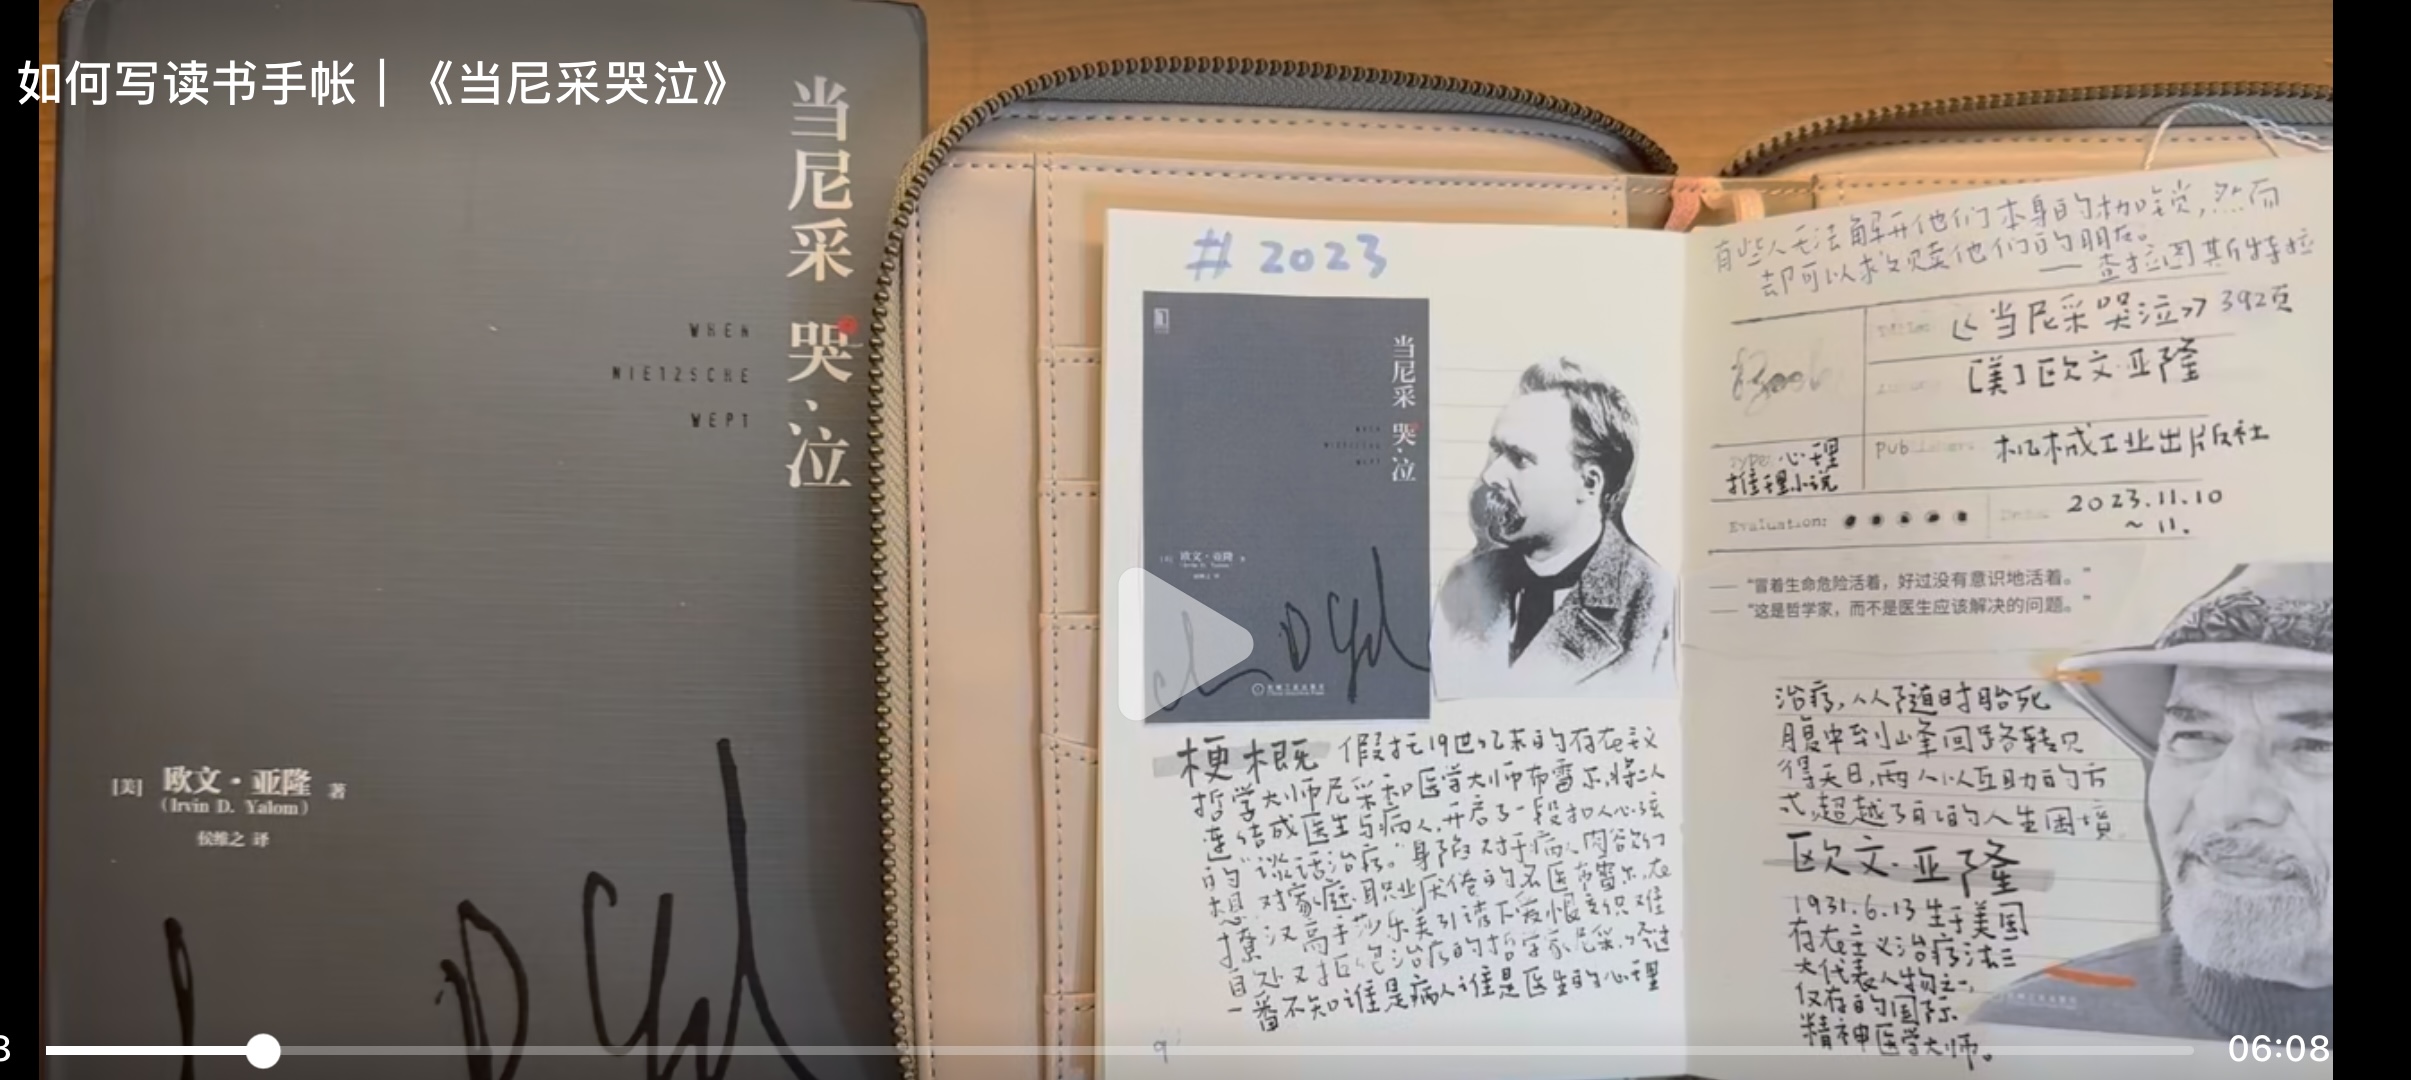 如何写读书手帐｜《当尼采哭泣》
当尼采 哭泣
WHEN
NIETZSCHE
WEPT
[美] 欧文·亚隆 著
(Irvin D. Yalom)
侯维之 译
# 2023
当尼采 哭泣
欧文·亚隆
梗概 假托19世纪末的存在主义
哲学大师尼采和医学大师布雷尔,将二人
连结成医生与病人,开启了一段扣人心弦
的"谈话治疗。"身陷对于病人肉欲幻
想、对家庭、职业厌倦的名医布雷尔,在
撩汉高手莎乐美引诱下
自处又拒绝治疗的哲学家尼采,
一番不知谁是病人谁是医生的心理
有些人无法解开他们本身的枷锁,然而
却可以求赎他们的朋友。
—查拉图斯特拉
Title: 《当尼采哭泣》392页
[美]欧文·亚隆
Publisher: 机械工业出版社
Type: 心理
推理小说
Evaluation: ●●●●●
Date: 2023.11.10
~11.
—— “冒着生命危险活着，好过没有意识地活着。”
—— “这是哲学家，而不是医生应该解决的问题。”
治疗,从随时胎死
腹中到峰回路转见
得天日,两人以互助的方
式,超越了自己的人生困境
欧文·亚隆
1931.6.13生于美国
存在主义治疗法三
大代表人物之一,
仅存的国际
精神医学大师。
06:08